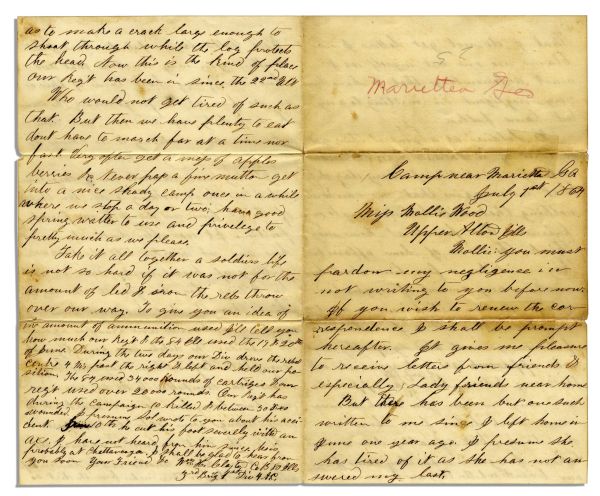 Mariettea Geo
Camp near Marietta Ga
July 1st 1864
Miss Mollie Wood
Upper Alton Ills
Mollie: you must
pardon my negligence in
not writing to you before now.
If you wish to renew the cor-
respondence I shall be prompt
hereafter. It gives me pleasure
to receive letters from friends &
especially Lady friends near home
But there has been but one such
written to me since I left home in
June one year ago. I presume she
has tired of it as she has not an-
swered my last.
as to make a crack large enough to
shoot through while the log protects
the head. Now this is the kind of place
our Reg't has been in since the 22nd
Who would not get tired of such as
that. But then we have plenty to eat
dont have to march far at a time nor
fast. Very often get a mess of apples
berries &c Never pass a fine mutton get
into a nice shady camp once in a while
where we stop a day or two; have good
spring watter to use and privelege to
pretty much as we please.
Take it all together a soldiers life
is not so hard if it was not for the
amount of led & iron the rebs throw
over our way. To give you an idea of
the amount of ammunition used I'll tell you
how much our Reg't & the 84 Ills used the 17 & 20th
of June. During the two days our Div drove the rebs
centre 4 ms past the right & left and held our po-
sition. The 84 used 34000 Rounds of cartriges & our
regt used over 20000 rounds. Our Reg't has
during the campaign in killed & between 30 & 40
wounded. I presume Sol wrote you about his acci-
dent. 10th he cut his foot severely with an
axe. I have not heard from him since. He is
probably at Chattanooga. I shall be glad to hear from
you soon. Your Friend &c Wm Co B 80 Ills
3rd Brig 1st Div 4 AC